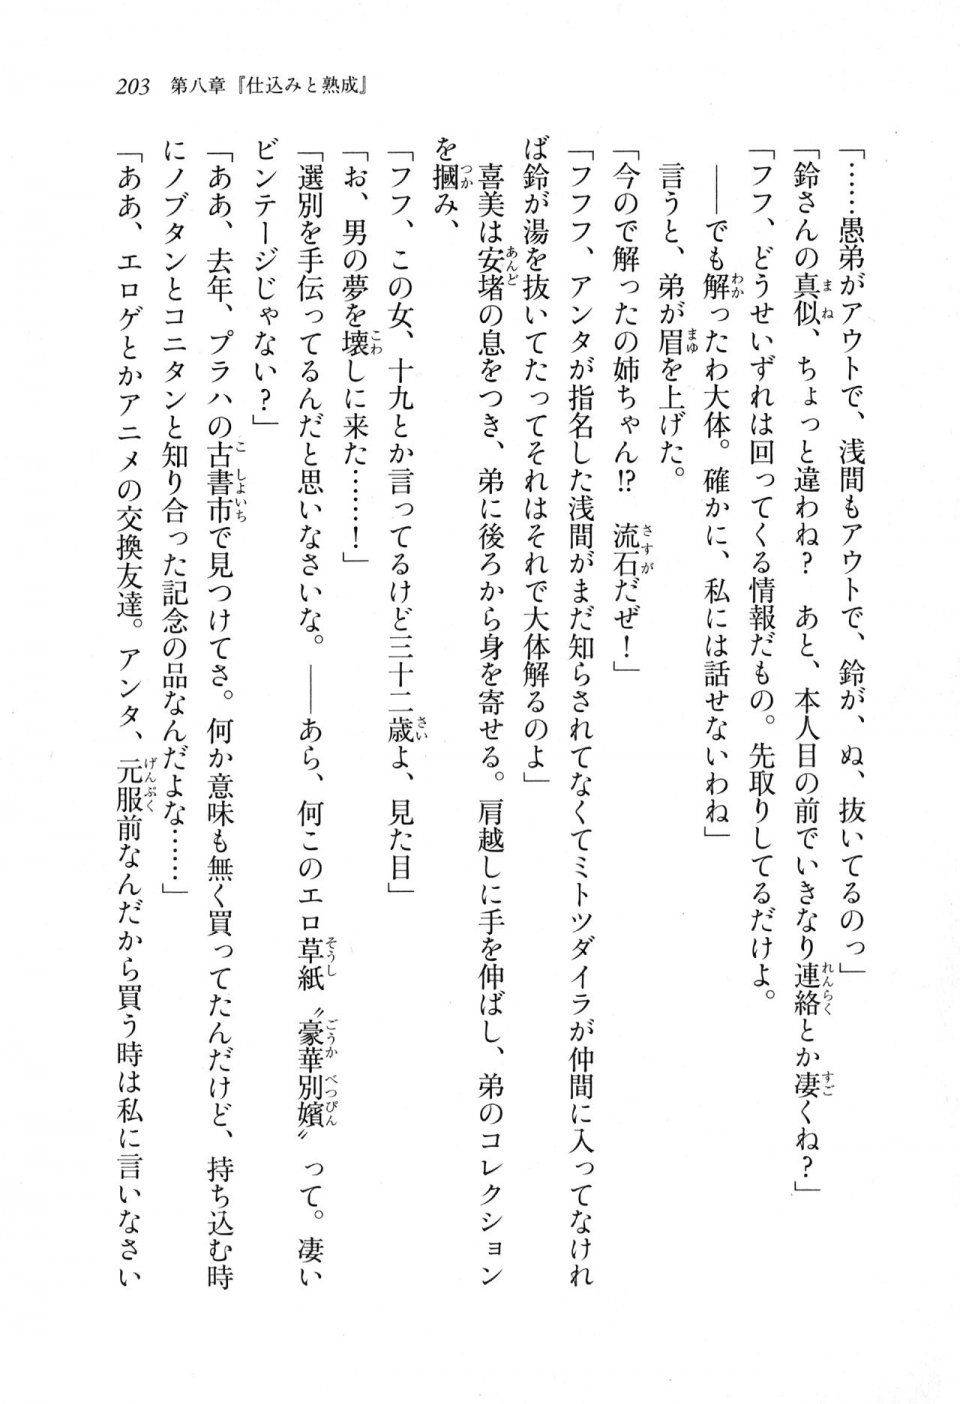 203　第八章『仕込みと熟成』
「……愚弟がアウトで、浅間もアウトで、鈴が、ぬ、抜いてるのっ」
「鈴さんの真似、ちょっと違わね？　あと、本人目の前でいきなり連絡とか凄くね？」
「フフ、どうせいずれは回ってくる情報だもの。先取りしてるだけよ。
――でも解ったわ大体。確かに、私には話せないわね」
言うと、弟が眉を上げた。
「今ので解ったの姉ちゃん!?　流石だぜ！」
「フフフ、アンタが指名した浅間がまだ知らされてなくてミトツダイラが仲間に入ってなけれ
ば鈴が湯を抜いてたってそれはそれで大体解るのよ」
喜美は安堵の息をつき、弟に後ろから身を寄せる。肩越しに手を伸ばし、弟のコレクション
を摑み、
「フフ、この女、十九とか言ってるけど三十二歳よ、見た目」
「お、男の夢を壊しに来た……！」
「選別を手伝ってるんだと思いなさいな。――あら、何このエロ草紙〝豪華別嬪〟って。凄い
ビンテージじゃない？」
「ああ、去年、プラハの古書市で見つけてさ。何か意味も無く買ってたんだけど、持ち込む時
にノブタンとコニタンと知り合った記念の品なんだよな……」
「ああ、エロゲとかアニメの交換友達。アンタ、元服前なんだから買う時は私に言いなさい